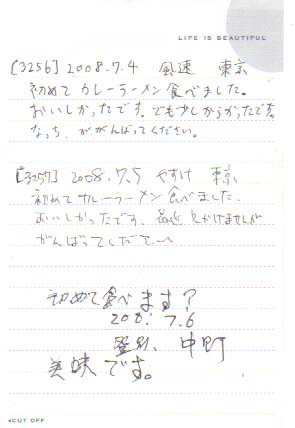 LIFE IS BEAUTIFUL
[3256] 2008.7.4 風速 東京
初めて カレーラーメン 食べました。
おいしかったです。でも少しからかったです。
なっち、がんばってください。
[3257] 2008.7.5 やすけ 東京
初めて カレーラーメン 食べました。
おいしかったです。最近 見かけませんが
がんばってください
初めて食べます?
200. 7.6
登別、中町
美味です。
◂CUT OFF